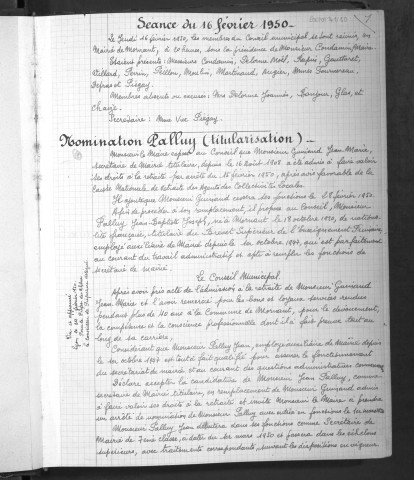 7
Séance du 16 février 1950.
Le Jeudi 16 février 1950, les membres du Conseil municipal se sont réunis, en
Mairie de Mornant, à 20 heures, sous la présidence de Monsieur Condamin, Maire.
Étaient présents : Messieurs Condamin, Delorme Noël, Rapin, Gaultoret,
Villard, Perrin, Pillon, Moulin, Martinaud, Mmes Fournereau,
et Piégay.
Membres absents ou excusés : Mrs Delorme Joannès, Bonjour, Glas, et
Secrétaire : Mme Vve Piégay.
Nomination Palluy (titularisation)
Monsieur le Maire expose au Conseil que Monsieur Guinand Jean Marie,
Secrétaire de Mairie titulaire, depuis le 16 Août 1908 a été admis à faire valoir
ses droits à la retraite par arrêté du 15 février 1950, après avis favorable de la
Caisse Nationale de retraite des Agents des Collectivités locales.
Monsieur Guinand cessera ses fonctions le 28 février 1950.
Afin de procéder à son remplacement, il propose au Conseil, Monsieur
Palluy Jean-Baptiste Joseph, né à Mornant le 19 octobre 1920, de nationa-
lité française, titulaire du Brevet Supérieur de l'Enseignement Primaire,
employé auxiliaire de Mairie depuis le 1er octobre 1947, qui est parfaitement
au courant du travail administratif et apte à remplir les fonctions de
secrétaire de mairie.
Le Conseil Municipal.
Après avoir pris acte de l'admission à la retraite de Monsieur Guinand
Jean Marie et l'avoir remercié pour les bons et loyaux services rendus
pendant plus de 40 ans à la Commune de Mornant, pour le dévouement,
la compétence et la conscience professionnelle dont il a fait preuve tout au
long de sa carrière,
Considérant que Monsieur Palluy Jean, employé auxiliaire de Mairie depuis
le 1er octobre 1947 est tout à fait qualifié pour assurer le fonctionnement
du secrétariat de mairie et au courant des questions administratives communales
Déclare accepter la candidature de Monsieur Jean Palluy, comme
secrétaire de Mairie titulaire, en remplacement de Monsieur Guinand admis
à faire valoir ses droits à la retraite et invite Monsieur le Maire à prendre
un arrêté de nomination de Monsieur Palluy avec entrée en fonctions le 1er mars 1950
Monsieur Palluy Jean débutera dans ses fonctions comme Secrétaire de
Mairie de 7ème classe, à dater du 1er mars 1950 et passera dans les échelons
supérieurs, avec traitements correspondants, suivant les dispositions en vigueur
Vu et approuvé
Lyon le